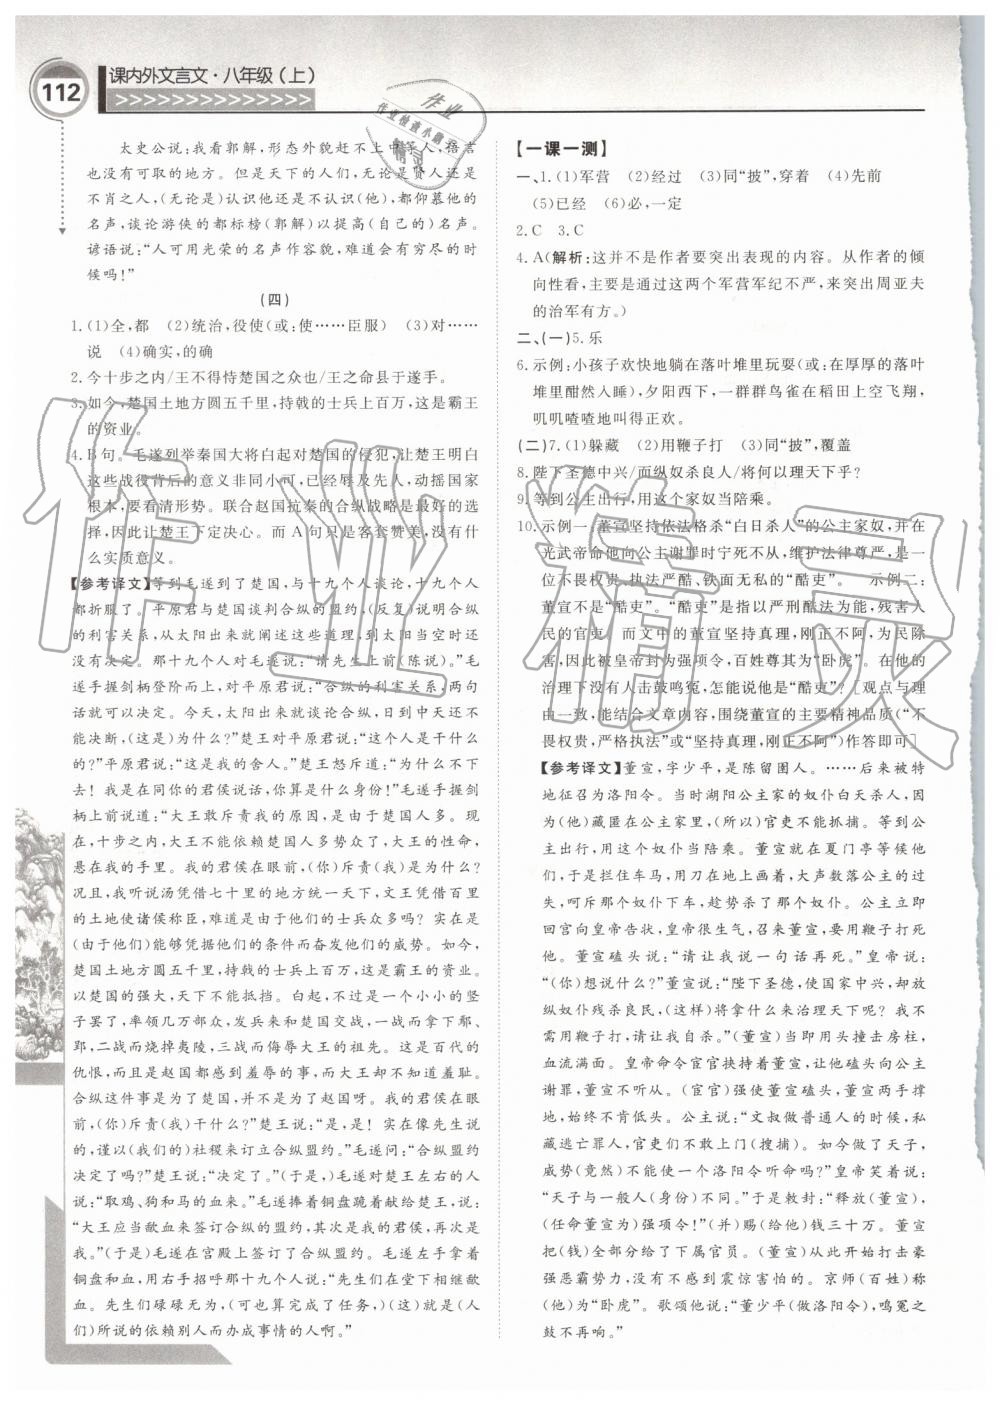 112
课内外文言文·八年级(上)
太史公说:我看郭解,形态外貌赶不上中等人,语言
也没有可取的地方。但是天下的人们,无论是贤人还是
不肖之人,(无论是)认识他还是不认识(他),都仰慕他的
名声,谈论游侠的都标榜(郭解)以提高(自己的)名声。
谚语说:“人可用光荣的名声作容貌,难道会有穷尽的时
候吗!”
(四)
1. (1)全,都 (2)统治,役使(或:使……臣服) (3)对……
说 (4)确实,的确
2. 今十步之内/王不得恃楚国之众也/王之命县于遂手。
3. 如今,楚国土地方圆五千里,持戟的士兵上百万,这是霸王
的资业。
4. B句。毛遂列举秦国大将白起对楚国的侵犯,让楚王明白
这些战役背后的意义非同小可,已经辱及先人,动摇国家
根本,要看清形势。联合赵国抗秦的合纵战略是最好的选
择,因此让楚王下定决心。而A句只是客套赞美,没有什
么实质意义。
【参考译文】等到毛遂到了楚国,与十九个人谈论,十九个人
都折服了。平原君与楚国谈判合纵的盟约,(反复)说明合纵
的利害关系,从太阳出来就阐述这些道理,到太阳当空时还
没有决定。那十九个人对毛遂说:“请先生上前(陈说)。”毛
遂手握剑柄登阶而上,对平原君说:“合纵的利害关系,两句
话就可以决定。今天,太阳出来就谈论合纵,日到中天还不
能决断,(这是)为什么?”楚王对平原君说:“这个人是干什么
的?”平原君说:“这是我的舍人。”楚王怒斥道:“为什么不下
去!我是在同你的君侯说话,你算是什么身份!”毛遂手握剑
柄上前说道:“大王敢斥责我的原因,是由于楚国人多。现
在,十步之内,大王不能依赖楚国人多势众了,大王的性命,
悬在我的手里。我的君侯在眼前,(你)斥责(我)是为什么?
况且,我听说汤凭借七十里的地方统一天下,文王凭借百里
的土地使诸侯称臣,难道是由于他们的士兵众多吗?实在是
(由于他们)能够凭据他们的条件而奋发他们的威势。如今,
楚国土地方圆五千里,持戟的士兵上百万,这是霸王的资业。
以楚国的强大,天下不能抵挡。白起,不过是一个小小的竖
子罢了,率领几万部众,发兵来和楚国交战,一战而拿下鄢、
郢,二战而烧掉夷陵,三战而侮辱大王的祖先。这是百代的
仇恨,而且是赵国都感到羞辱的事,而大王却不知道羞耻。
合纵这件事是为了楚国,并不是为了赵国呀。我的君侯在眼
前,(你)斥责(我)干什么?”楚王说:“是,是!实在像先生说
的,谨以(我们的)社稷来订立合纵盟约。”毛遂问:“合纵盟约
决定了吗?”楚王说:“决定了。”(于是,)毛遂对楚王左右的人
说:“取鸡、狗和马的血来。”毛遂捧着铜盘跪着献给楚王,说:
“大王应当歃血来签订合纵的盟约,其次是我的君侯,再次是
我。”(于是)毛遂在宫殿上签订了合纵盟约。毛遂左手拿着
铜盘和血,用右手招呼那十九个人说:“先生们在堂下相继歃
血。先生们碌碌无为,(可也算是完成了任务,)(这)就是(人
们)所说的依赖别人而办成事情的人啊。”
【一课一测】
一、1. (1)军营 (2)经过 (3)同“披”,穿着 (4)先前
(5)已经 (6)必,一定
2. C 3. C
4. A(解析:这并不是作者要突出表现的内容。从作者的倾
向性看,主要是通过这两个军营军纪不严,来突出周亚夫
的治军有方。)
二、(一)5. 乐
6. 示例:小孩子欢快地躺在落叶堆里玩耍(或:在厚厚的落叶
堆里酣然入睡),夕阳西下,一群群鸟雀在稻田上空飞翔,
叽叽喳喳地叫得正欢。
(二)7. (1)躲藏 (2)用鞭子打 (3)同“披”,覆盖
8. 陛下圣德中兴/而纵奴杀良人/将何以理天下乎?
9. 等到公主出行,用这个家奴当陪乘。
10. 示例一:董宣坚持依法格杀“白日杀人”的公主家奴,并在
光武帝命他向公主谢罪时宁死不从,维护法律尊严,是一
位不畏权贵、执法严酷、铁面无私的“酷吏”。 示例二:
董宣不是“酷吏”。“酷吏”是指以严刑酷法为能,残害人
民的官吏。而文中的董宣坚持真理,刚正不阿,为民除
害,因此被皇帝封为强项令,百姓尊其为“卧虎”。在他的
治理下没有人击鼓鸣冤,怎能说他是“酷吏”?[观点与理
由一致,能结合文章内容,围绕董宣的主要精神品质(“不
畏权贵,严格执法”或“坚持真理,刚正不阿”)作答即可]
【参考译文】董宣,字少平,是陈留圉人。……后来被特
地征召为洛阳令。当时湖阳公主家的奴仆白天杀人,因
为(他)藏匿在公主家里,(所以)官吏不能抓捕。等到公
主出行,用这个奴仆当陪乘。董宣就在夏门亭等候他
们,于是拦住车马,用刀在地上画着,大声数落公主的过
失,呵斥那奴仆下车,趁势杀了那个奴仆。公主立即
回宫向皇帝告状,皇帝很生气,召来董宣,要用鞭子打死
他。董宣磕头说:“请让我说一句话再死。”皇帝说:
“(你)想说什么?”董宣说:“陛下圣德,使国家中兴,却放
纵奴仆残杀良民,(这样)将拿什么来治理天下呢?我不
需用鞭子打,请让我自杀。”(于是)就用头去撞柱子,
血流满面。皇帝命令宦官扶持着董宣,让他磕头向公主
谢罪,董宣不听从。(宦官)强使董宣磕头,董宣两手撑
地,始终不肯低头。公主说:“文叔做普通人的时候,私
藏逃亡罪人,官吏们不敢上门(搜捕)。如今做了天子,
威势(竟然)不能使一个洛阳令听命吗?”皇帝笑着说:
“天子与一般人(身份)不同。”于是敕封:“释放(董宣),
(任命董宣为)强项令!”(并)赐(给他)钱三十万。董宣
把(钱)全部分给了下属官员。(董宣)从此开始打击豪
强恶霸势力,没有谁不感到震惊害怕的。京师(百姓)称
(他)为“卧虎”。歌颂他说:“董少平(做洛阳令),鸣冤之
鼓不再响。”
作业
作业检查小助手
精灵
作业精灵